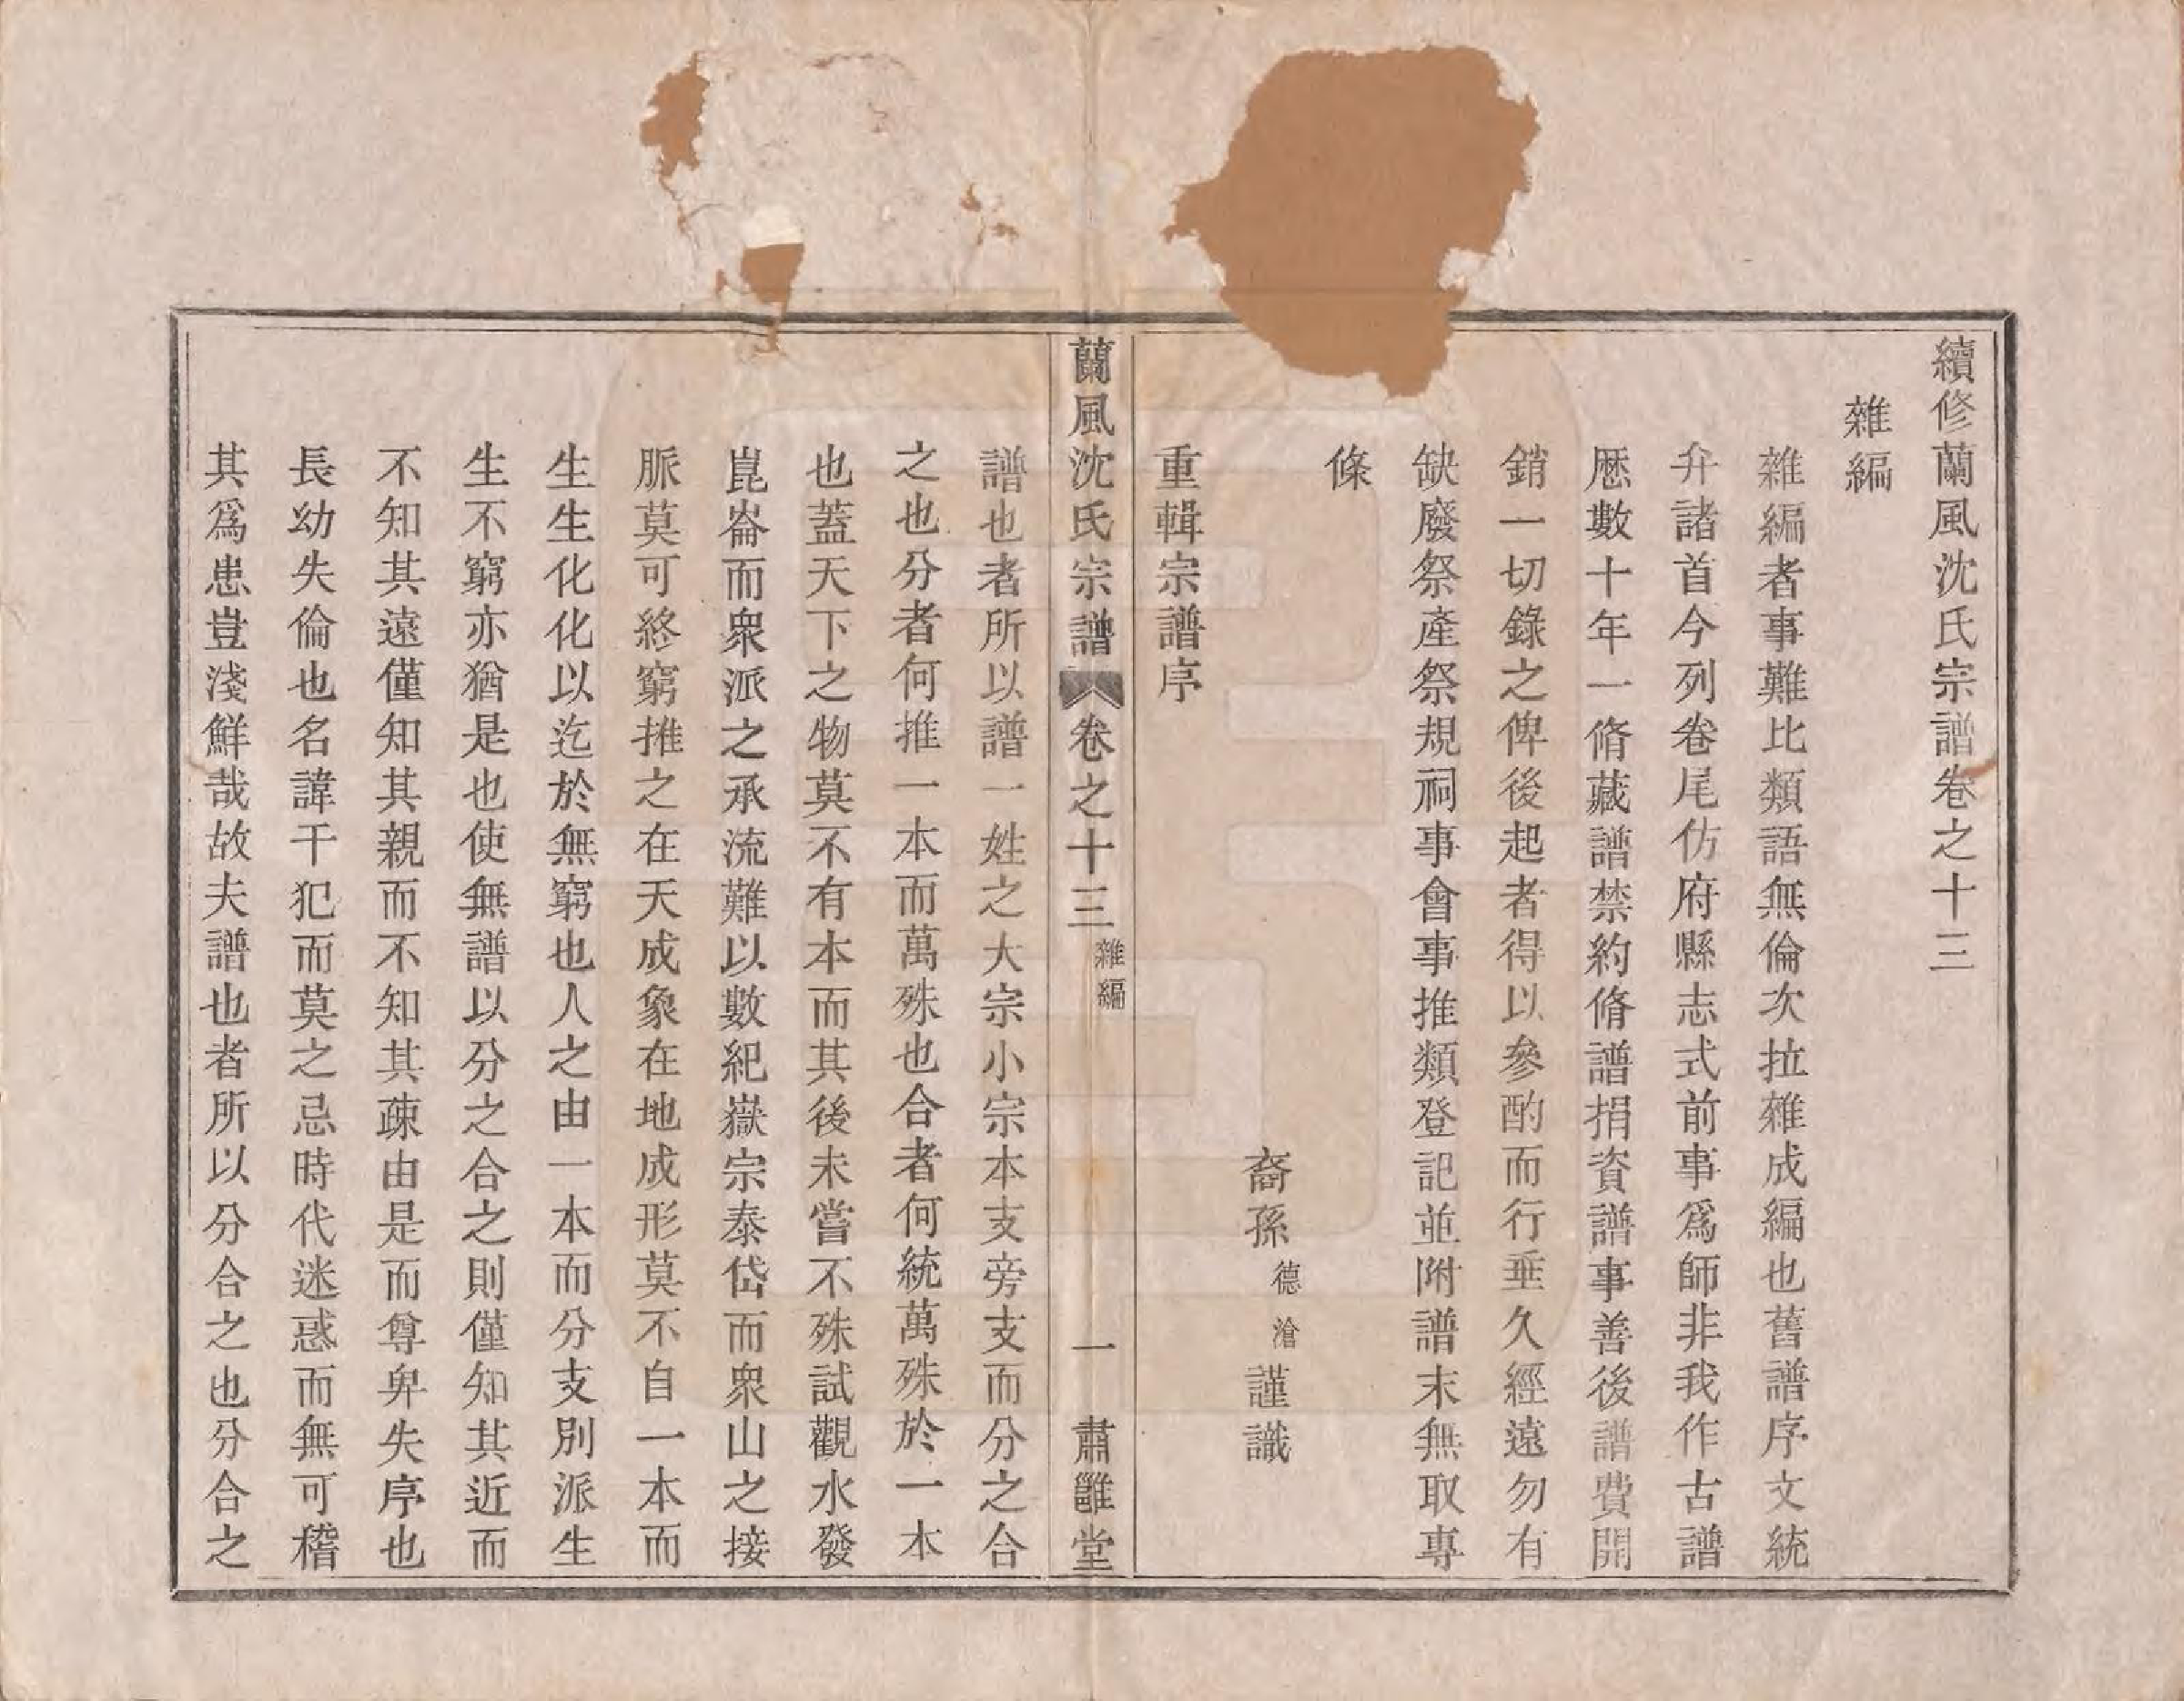 續修蘭風沈氏宗譜卷之十三
雜編
雜編者事難比類語無倫次拉雜成編也舊譜序文統
弁諸首今列卷尾仿府縣志式前事爲師非我作古譜
歷數十年一脩藏譜禁約脩譜捐資譜事善後譜費開
銷一切錄之俾後起者得以參酌而行垂久經遠勿有
缺廢祭產祭規祠事會事推類登記並附譜末無取專
條
裔孫德滄謹識
重輯宗譜序
蘭風沈氏宗譜 卷之十三 雜編 一 肅雝堂
譜也者所以譜一姓之大宗小宗本支旁支而分之合
之也分者何推一本而萬殊也合者何統萬殊於一本
也蓋天下之物莫不有本而其後未嘗不殊試觀水發
崑崙而衆派之承流難以數紀嶽宗泰岱而衆山之接
脈莫可終窮推之在天成象在地成形莫不自一本而
生生化化以迄於無窮也人之由一本而分支別派生
生不窮亦猶是也使無譜以分之合之則僅知其近而
不知其遠僅知其親而不知其疎由是而尊卑失序也
長幼失倫也名諱干犯而莫之忌時代迷惑而無可稽
其爲患豈淺鮮哉故夫譜也者所以分合之也分合之